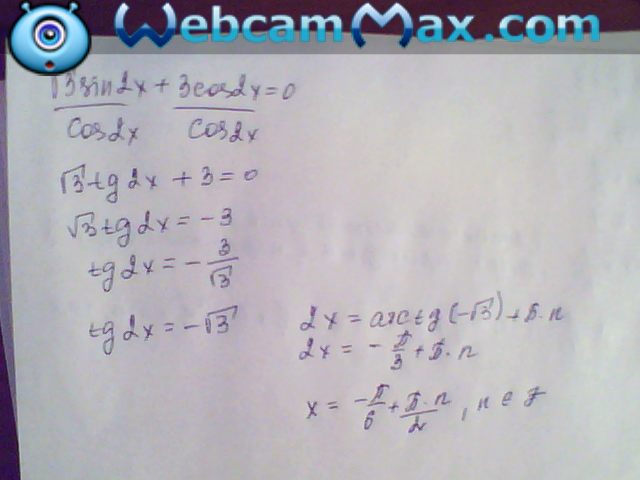 WebcamMax.com
√3sin2x + 3cos2x = 0
cos2x cos2x
√3 tg 2x + 3 = 0
√3 tg 2x = -3
tg 2x = - 3/√3
tg 2x = -√3
2x = arctg(-√3) + π·n
2x = - π/3 + π·n
x = -π/6 + π·n/2 , n ∈ z